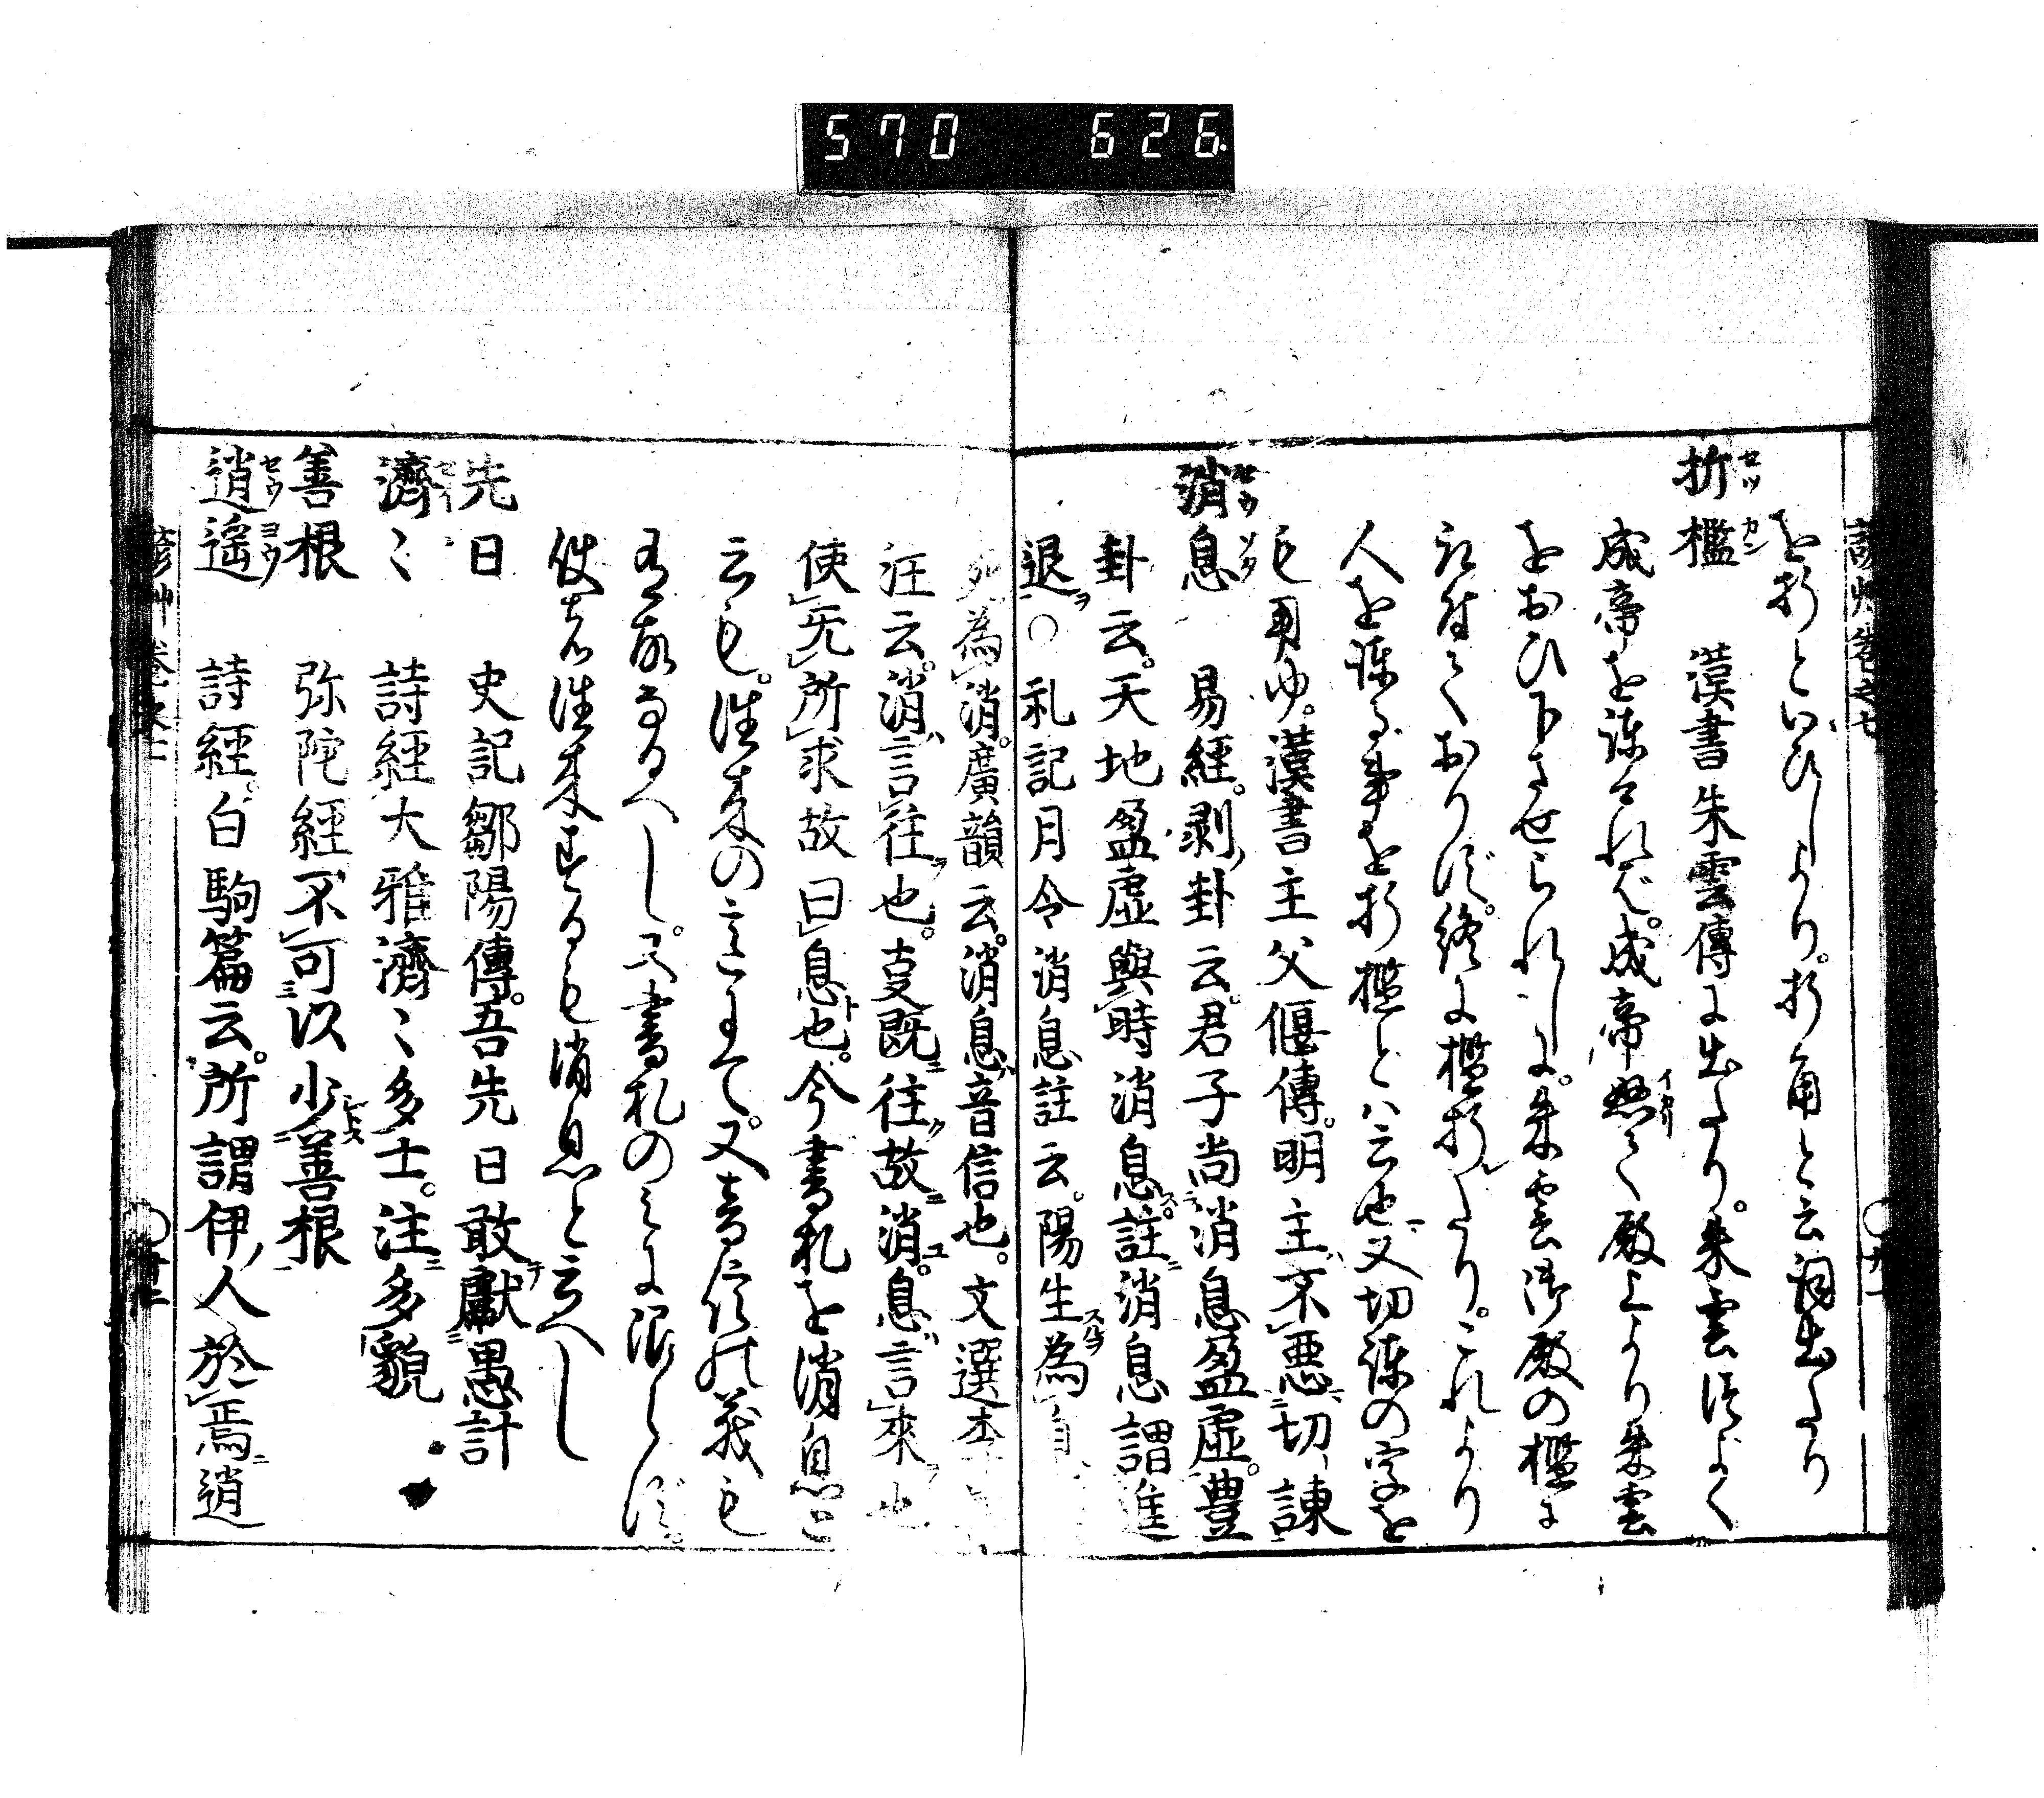 570 626
を折といひしより。折角と云詞出たり
折檻 漢書朱雲傳に出たり。朱雲信よく
成帝を諫されば。成帝怒て殿上より朱雲
をおひ下させられしに。朱雲御殿の檻に
取付ておりず。終に檻折たり。これより
人を諫る事を折檻とハ云也又切諫の字を
も用ゆ。漢書主父偃傳。明主不悪切諫
消息 易經。剥卦云。君子尚消息盈虚。豊
卦云。天地盈虚與時消息。註消息謂進
退○礼記月令消息註云。陽生為
死為消。廣韻云。消息音信也。文選
注云。消言往也。㕝既往故消。息言来也
使无所求故曰息也。今書札を消息と
云も。往来の言にて。又音信の義も
有故なるへし。又書札のみに限らず。
使者往来するも消息と言へし
先日 史記鄒陽傳。吾先日敢獻愚計
濟〻 詩經大雅濟〻多士。注多貌
善根 弥陀經不可以少善根
逍遙 詩經。白駒篇云。所謂伊人於焉逍